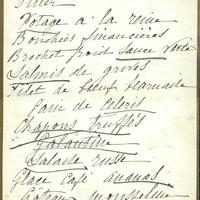 Dîner
Potage à la reine
Bouchées financières
Brochet froid sauce verte
Salmis de grives
Filet de boeuf béarnaise
Pain de céleris
Chapons truffés
Galantine
Salade russe
Glace café ananas
Gâteau mousseline